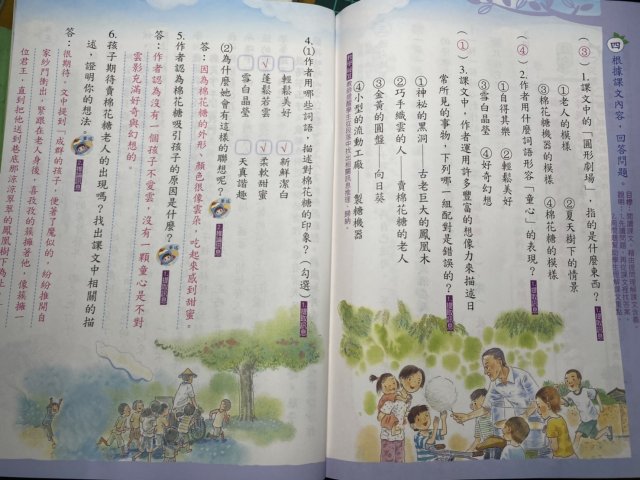 四 根據課文內容，回答問題。
(③) 1.課文中的「圓形劇場」，指的是什麼東西？
①老人的模樣 ②夏天樹下的情景
③棉花糖機器的模樣 ④棉花糖的模樣
(④) 2.作者用什麼詞語形容「童心」的表現？
①自得其樂 ②輕鬆美好
③雪白晶瑩 ④好奇幻想
(①) 3.課文中，作者運用許多豐富的想像力來描述日
常所見的事物，下列哪一組配對是錯誤的？
①神祕的黑洞——古老巨大的鳳凰木
②巧手織雲的人——賣棉花糖的老人
③金黃的圓盤——向日葵
④小型的流動工廠——製糖機器
4.(1)作者用哪些詞語，描述對棉花糖的印象？（勾選）
輕鬆美好 √新鮮潔白
√蓬鬆若雲 √柔軟甜蜜
雪白晶瑩 天真諧趣
(2)為什麼她會有這樣的聯想呢？
答：因為棉花糖的外形、顏色很像雲朵，吃起來感到甜蜜。
5.作者認為棉花糖吸引孩子的原因是什麼？
答：作者認為沒有一個孩子不愛雲，沒有一顆童心是不對
雲影充滿好奇與幻想的。
6.孩子期待賣棉花糖老人的出現嗎？找出課文中相關的描
述，證明你的想法。
答：很期待。文中提到「成群的孩子，便著了魔似的，紛紛推開自
家紗門衝出，緊跟在老人身後，喜孜孜的簇擁著他，像簇擁一
位君王，直到把他送到巷底那涼涼翠翠的鳳凰樹下為止